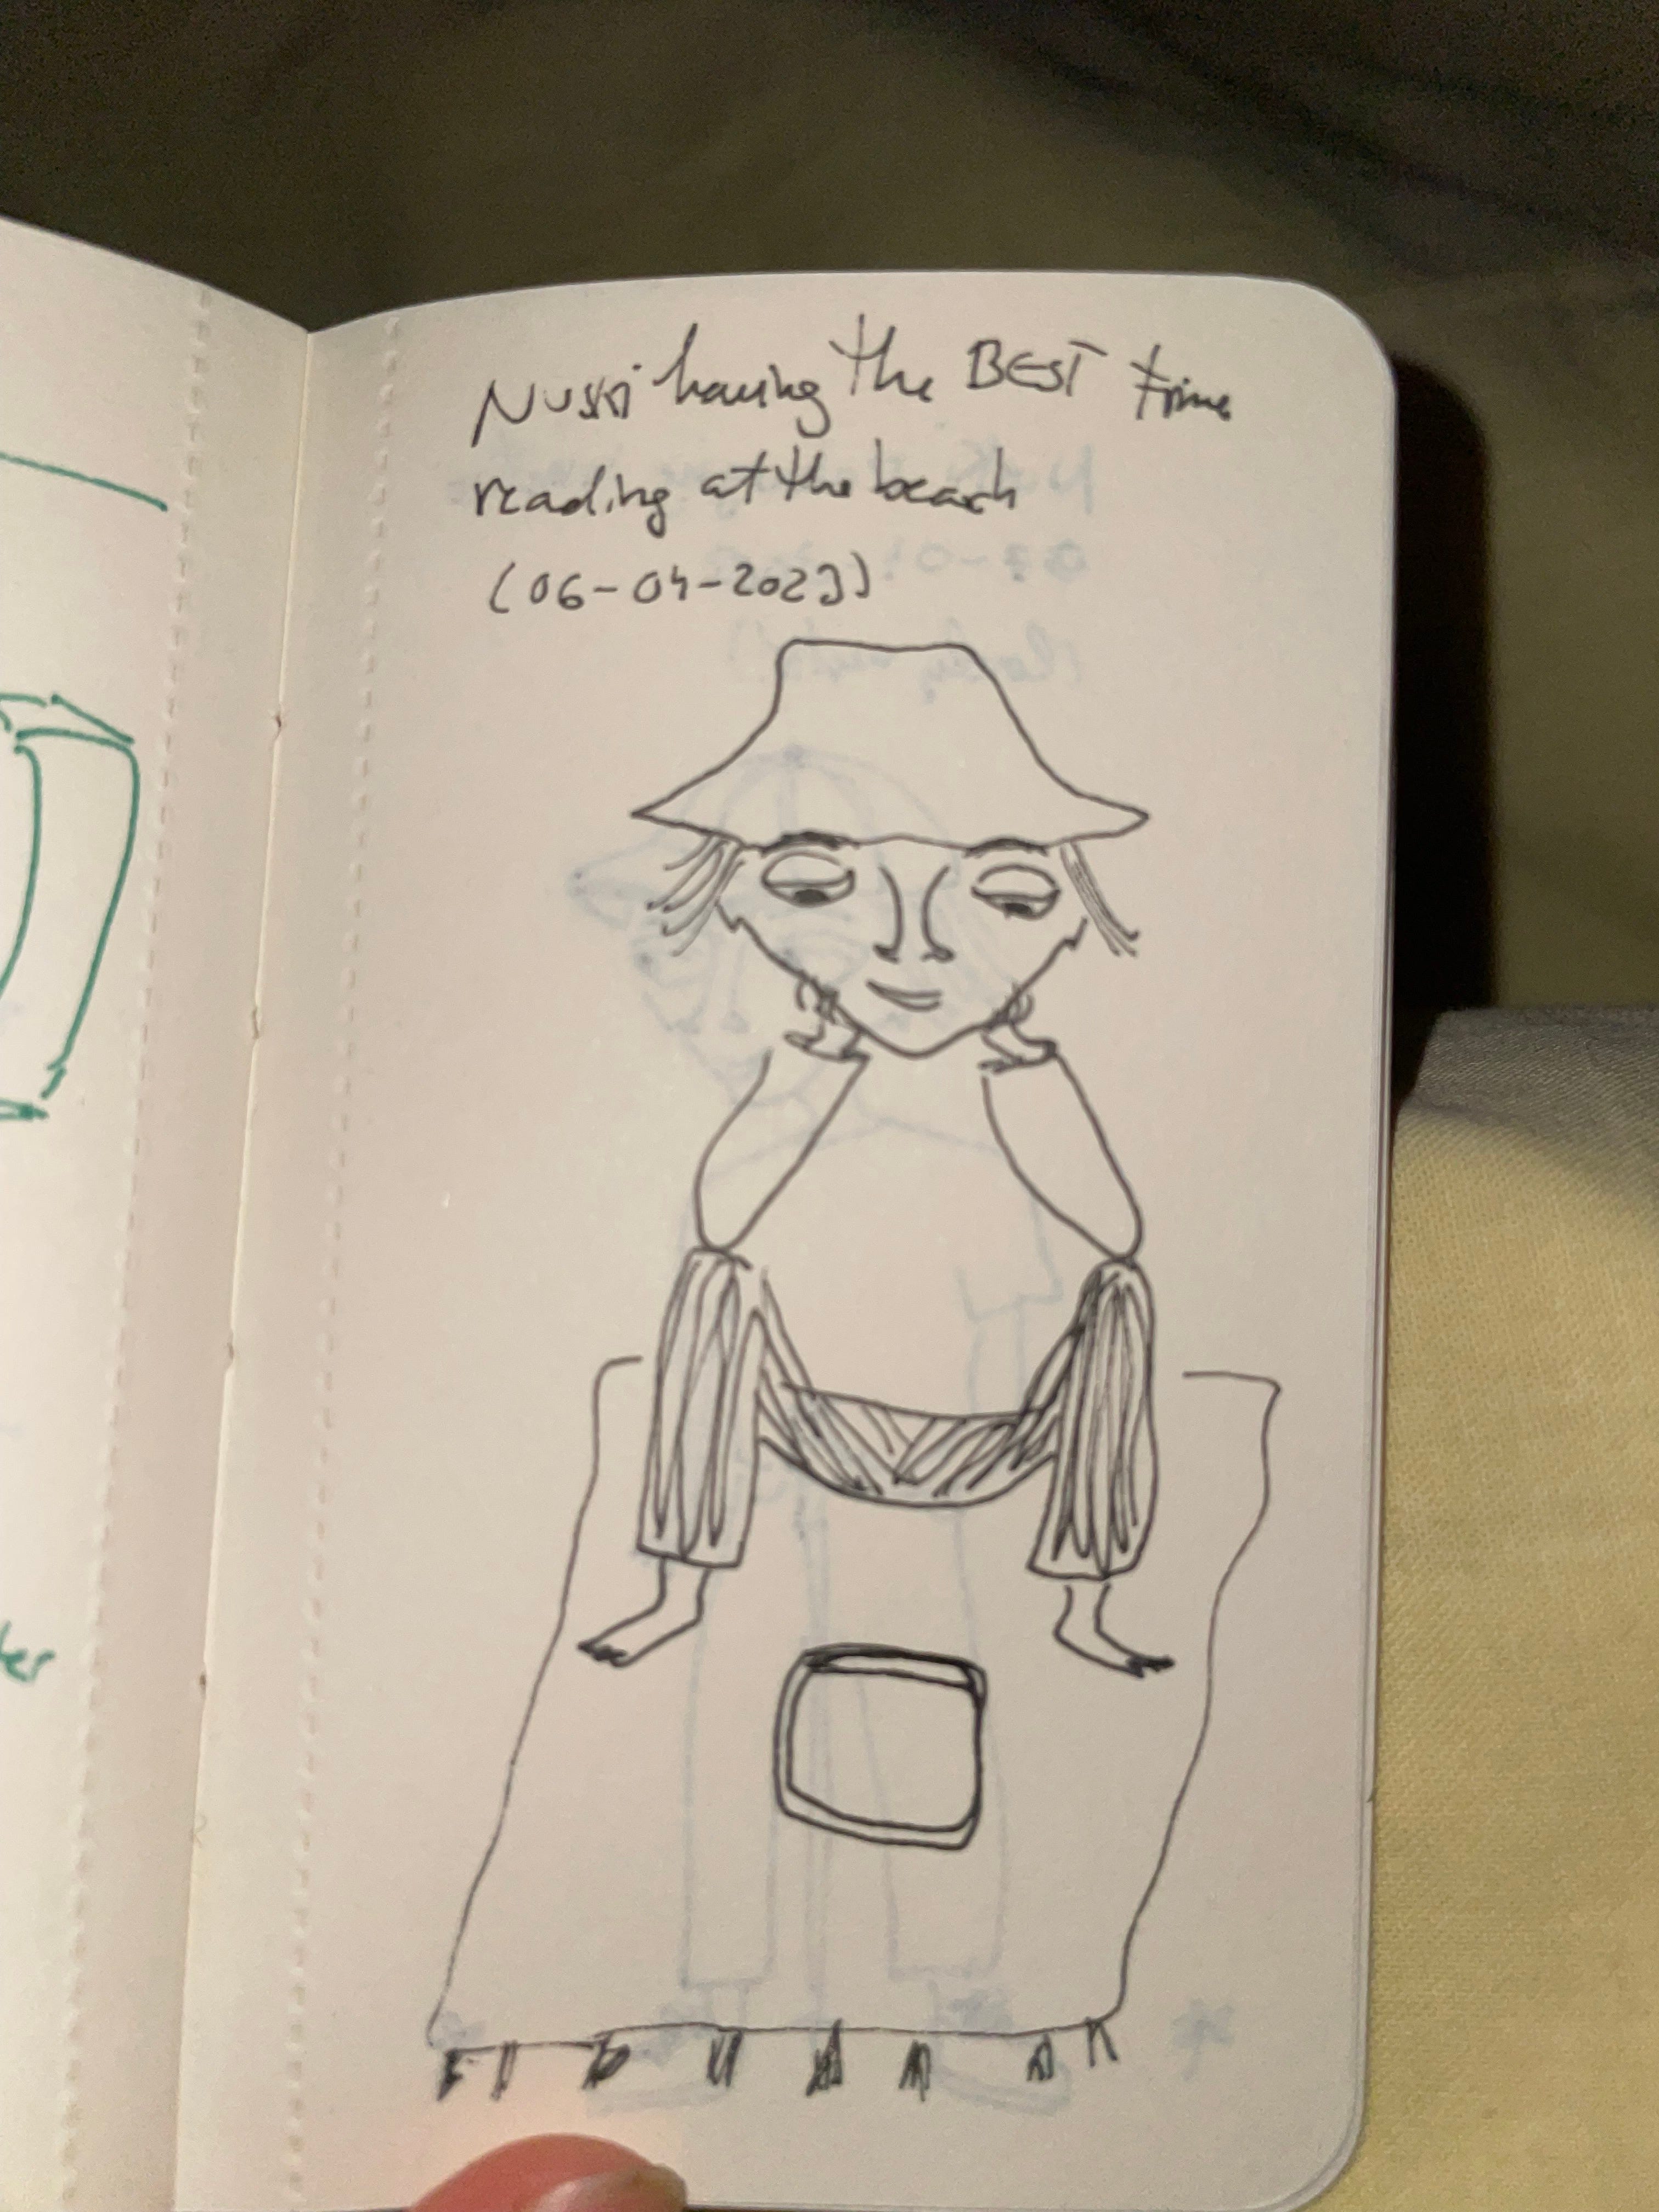 Nuski having the BEST time
reading at the beach
(06-04-2023)